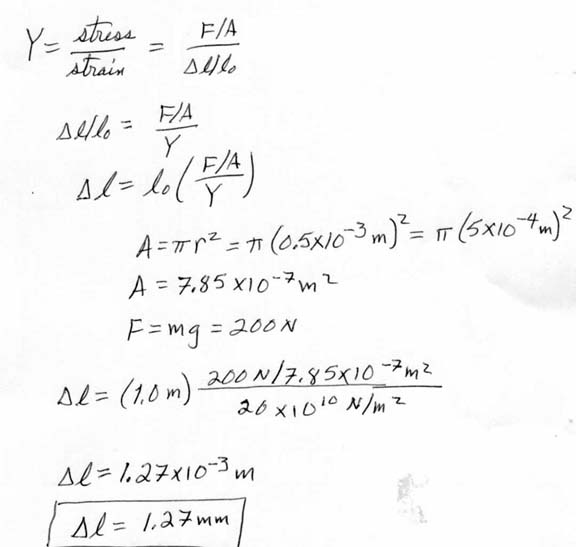 Y = stress/strain = F/A / Δl/l₀
Δl/l₀ = F/A / Y
Δl = l₀ (F/A / Y)
A = πr² = π (0.5×10⁻³ m)² = π (5×10⁻⁴ m)²
A = 7.85 ×10⁻⁷ m²
F = mg = 200 N
Δl = (1.0 m) 200 N/7.85×10⁻⁷ m² / 20 ×10¹⁰ N/m²
Δl = 1.27×10⁻³ m
Δl = 1.27 mm